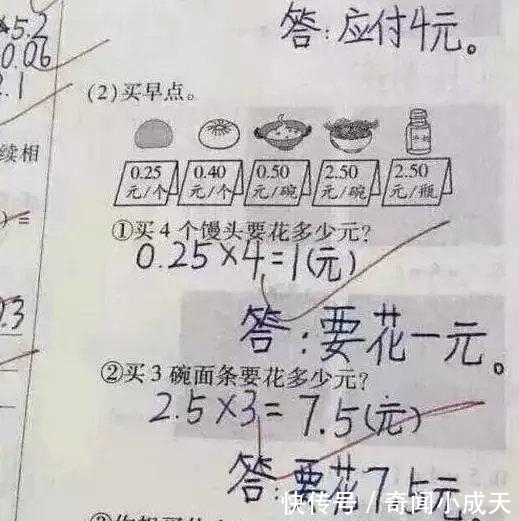 ×5.2
0.06
2.1
答:应付4元。
(2)买早点。
续相
0.25 0.40 0.50 2.50 2.50
元/个 元/个 元/碗 元/碗 元/瓶
①买4个馒头要花多少元?
0.25×4=1(元)
答:要花一元。
②买3碗面条要花多少元?
2.5×3=7.5(元)
答:要花7.5元
快传号/奇闻小成天